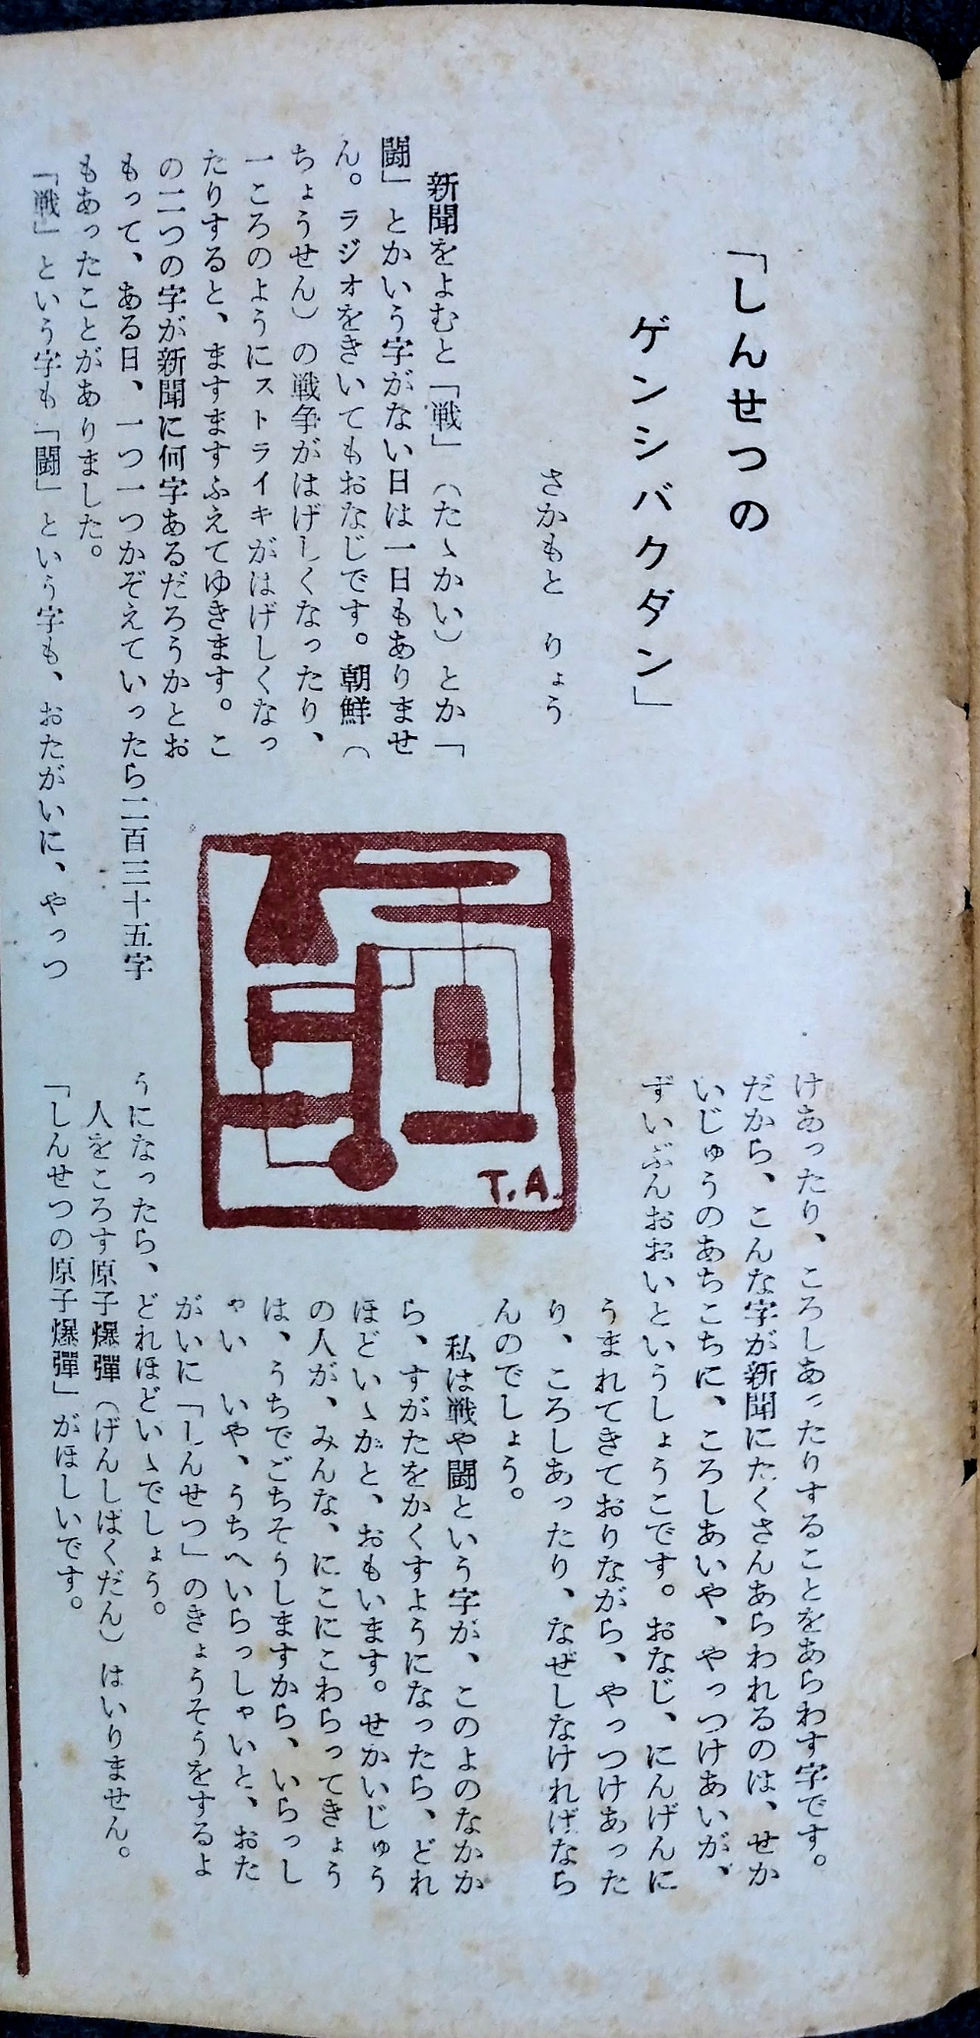 「しんせつの
ゲンシバクダン」
さかもと　りょう
新聞をよむと「戦」（たゝかい）とか「
闘」とかいう字がない日は一日もありませ
ん。ラジオをきいてもおなじです。朝鮮（
ちょうせん）の戦争がはげしくなったり、
一ころのようにストライキがはげしくなっ
たりすると、ますますふえてゆきます。こ
の二つの字が新聞に何字あるだろうかとお
もって、ある日、一つ一つかぞえていったら二百三十五字
もあったことがありました。
「戦」という字も「闘」という字も、おたがいに、やっつ
けあったり、ころしあったりすることをあらわす字です。
だから、こんな字が新聞にたくさんあらわれるのは、せか
いじゅうのあちこちに、ころしあいや、やっつけあいが、
ずいぶんおおいというしょうこです。おなじ、にんげんに
うまれてきておりながら、やっつけあった
り、ころしあったり、なぜしなければなら
んのでしょう。
私は戦や闘という字が、このよのなかか
ら、すがたをかくすようになったら、どれ
ほどいゝかと、おもいます。せかいじゅう
の人が、みんな、にこにこわらってきょう
は、うちでごちそうしますから、いらっし
ゃい　いや、うちへいらっしゃいと、おた
がいに「しんせつ」のきょうそうをするよ
うになったら、どれほどいゝでしょう。
人をころす原子爆彈（げんしばくだん）はいりません。
「しんせつの原子爆彈」がほしいです。
T.A.